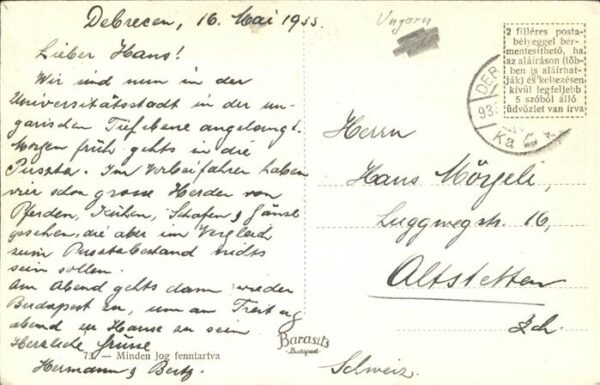 Debrecen, 16. Mai 1933.
Ungarn
Lieber Hans!
Wir sind nun in der
Universitätsstadt in der un-
garischen Tiefebene angelangt.
Morgen früh gehts in die
Puszta. Im Vorbeifahren haben
wir schon grosse Herden von
Pferden, Kühen, Schafen & Gänse
gesehen, die aber im Vergleich
zum Pusztabestand nichts
sein sollen.
Am Abend gehts dann wieder
Budapest zu, um am Freitag
abend zu Hause zu sein
Herzliche Grüsse
Hermann & Berty.
73 — Minden jog fenntartva
Barasits
Budapest
2 filléres posta-
bélyeggel bér-
mentesíthető, ha
az aláíráson (töb-
ben is aláírhat-
ják) és keltezésen
kívül legfeljebb
5 szóból álló
üdvözlet van írva
DEB
93
Herrn
Hans Mörgeli,
Luggwegstr. 16,
Altstetten
Zch.
Schweiz.